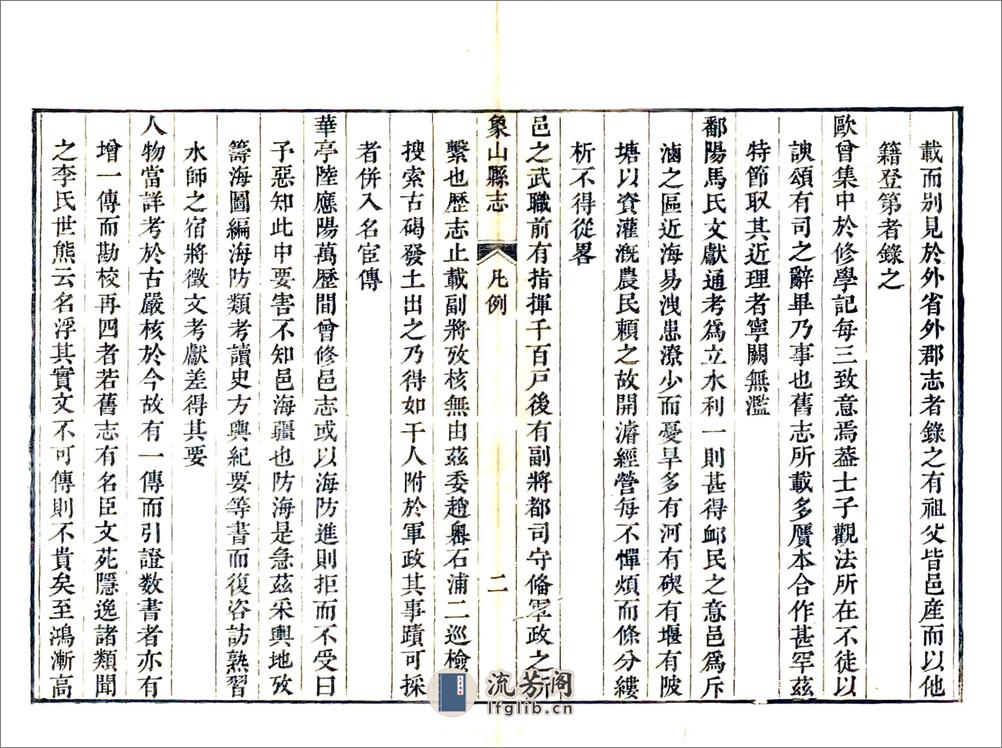 載而别見於外省外郡志者錄之有祖父皆邑産而以他
籍登第者錄之
歐曾集中於修學記每三致意焉葢士子觀法所在不徒以
諛頌有司之辭畢乃事也舊志所載多贗本合作甚罕兹
特節取其近理者寧闕無濫
鄱陽馬氏文獻通考爲立水利一則甚得䘏民之意邑爲斥
滷之區近海易洩患潦少而憂旱多有河有碶有堰有陂
塘以資灌漑農民頼之故開濬經營每不憚煩而條分縷
析不得從畧
邑之武職前有指揮千百戸後有副將都司守俻軍政之所
象山縣志
凡例
二
繫也歷志止載副將攷核無由茲委趙嶴石浦二巡檢
搜索古碣發土出之乃得如干人附於軍政其事蹟可採
者併入名宦傳
華亭陸應陽萬歷間曾修邑志或以海防進則拒而不受曰
子惡知此中要害不知邑海疆也防海是急茲采輿地攷
籌海圖編海防類考讀史方輿紀要等書而復咨訪熟習
水師之宿將徵文考獻差得其要
人物當詳考於古嚴核於今故有一傳而引證数書者亦有
增一傳而勘校再四者若舊志有名臣文苑隱逸諸類聞
之李氏世熊云名浮其實文不可傳則不貴矣至鴻漸高
流芳阁
lfglib.cn